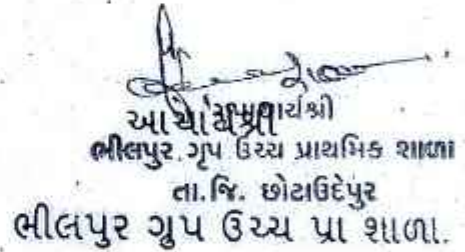 આચાર્યશ્રી
ભીલપુર ગૃપ ઉચ્ચ પ્રાથમિક શાળા
તા.જિ. છોટાઉદેપુર
ભીલપુર ગ્રુપ ઉચ્ચ પ્રા શાળા.